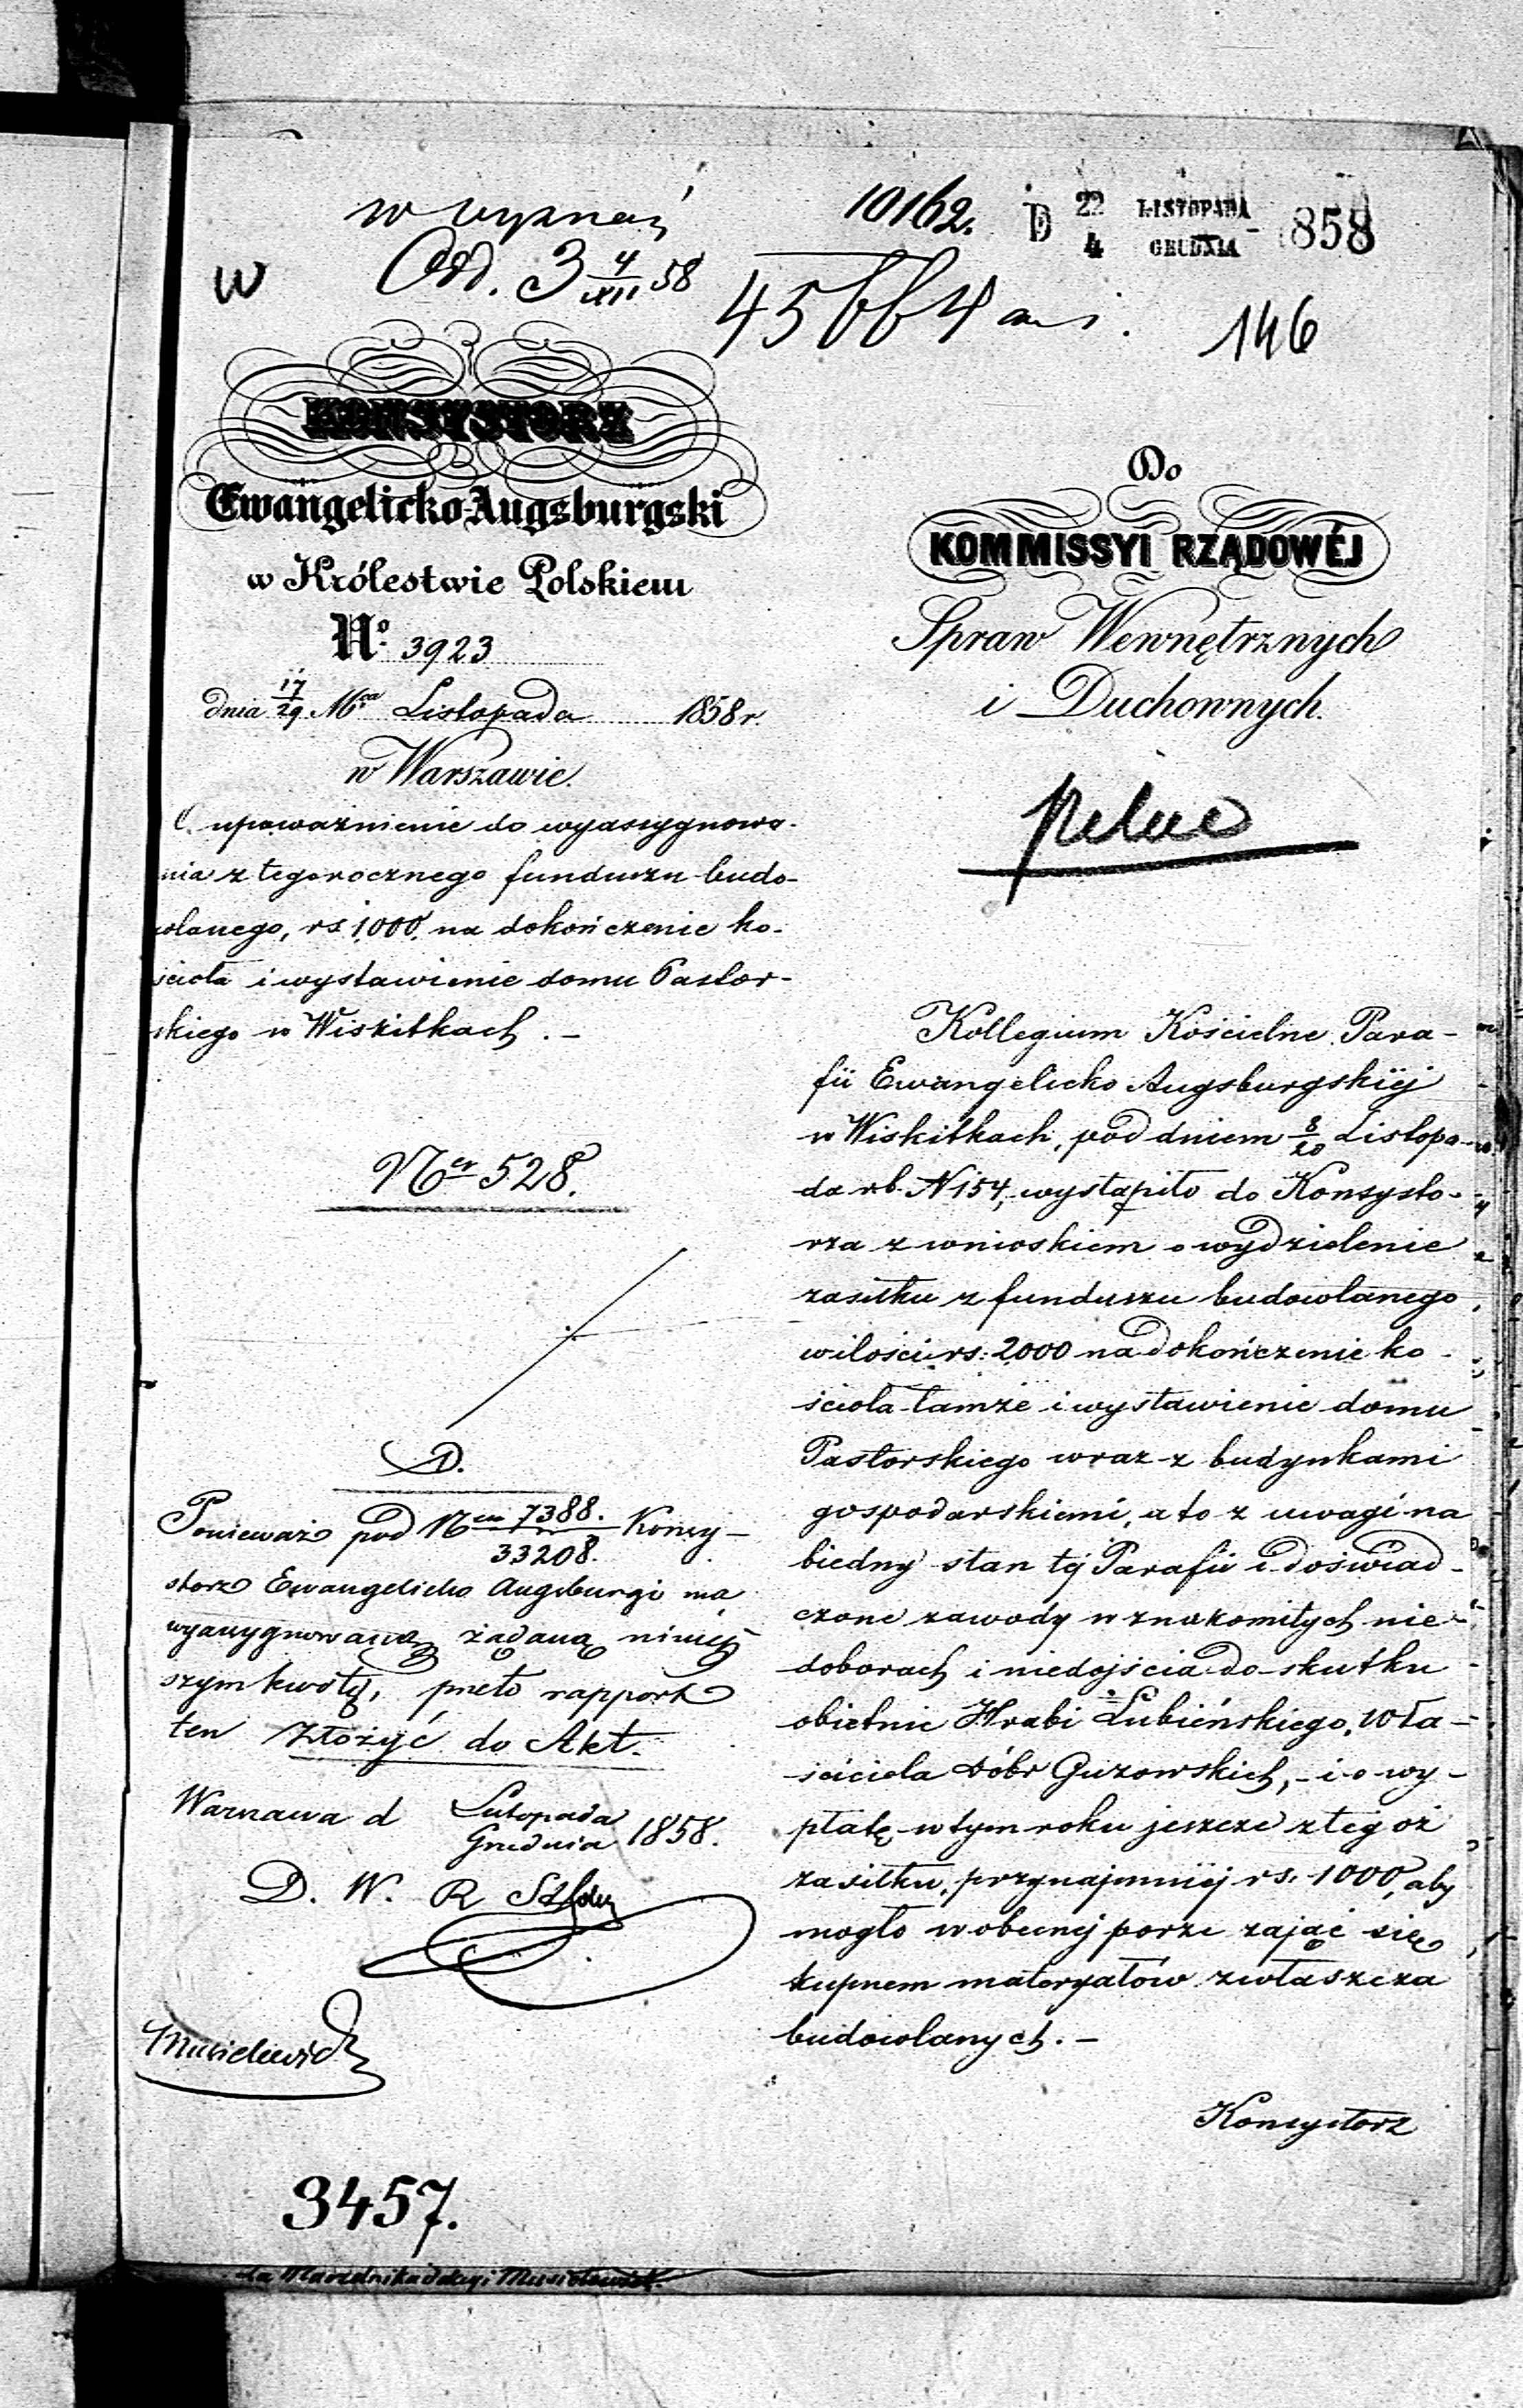 w wyznań
Odd. 3 4/XII 58
w
10162.
D 22/4 LISTOPADA/GRUDNIA 1858
146
KONSYSTORZ
Ewangelicko-Augsburgski
w Królestwie Polskiem
No. 3923
dnia 17/29 Mca Listopada 1858 r.
w Warszawie.
O upoważnienie do wyassygnowa-
nia z tegorocznego funduszu budo-
wlanego, rs 1,000 na dokończenie ko-
ścioła i wystawienie domu Pastor-
skiego w Wiskitkach. –
Ner 528.
D.
Ponieważ pod Nem 7388./33208. Konsy-
storz Ewangelicko Augsburgi ma
wyassygnowaną żądaną niniej
szym kwotę, przeto rapport
ten złożyć do Akt.
Warszawa d Listopada/Grudnia 1858.
D. W. R
3457.
Do
KOMMISSYI RZĄDOWÉJ
Spraw Wewnętrznych
i Duchownych.
pilne
Kollegium Kościelne Para-
fii Ewangelicko Augsburgskiéj
w Wiskitkach, pod dniem 8/20 Listopa-
da rb. N 154, wystąpiło do Konsysto-
rza z wnioskiem o wydzielenie
zasiłku z funduszu budowlanego
w ilości rs: 2,000 na dokończenie ko-
ścioła tamże i wystawienie domu
Pastorskiego wraz z budynkami
gospodarskiemi, a to z uwagi na
biedny stan téj Parafii i doświad-
czone zawody w znakomitych nie-
doborach i niedojścia do skutku
obietnic Hrabi Łubieńskiego, Wła-
ściciela dóbr Guzowskich, – i o wy-
płatę w tym roku jeszcze z tegoż
zasiłku, przynajmniéj rs. 1000, aby
mogło w obecnéj porze zająć się
kupnem materyałów zwłaszcza
budowlanych. –
Konsystorz